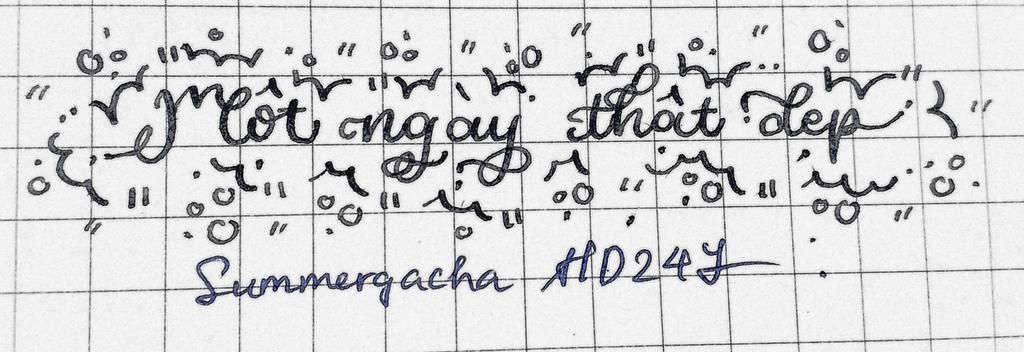 Một ngày thật đẹp
Summergacha HD24Y